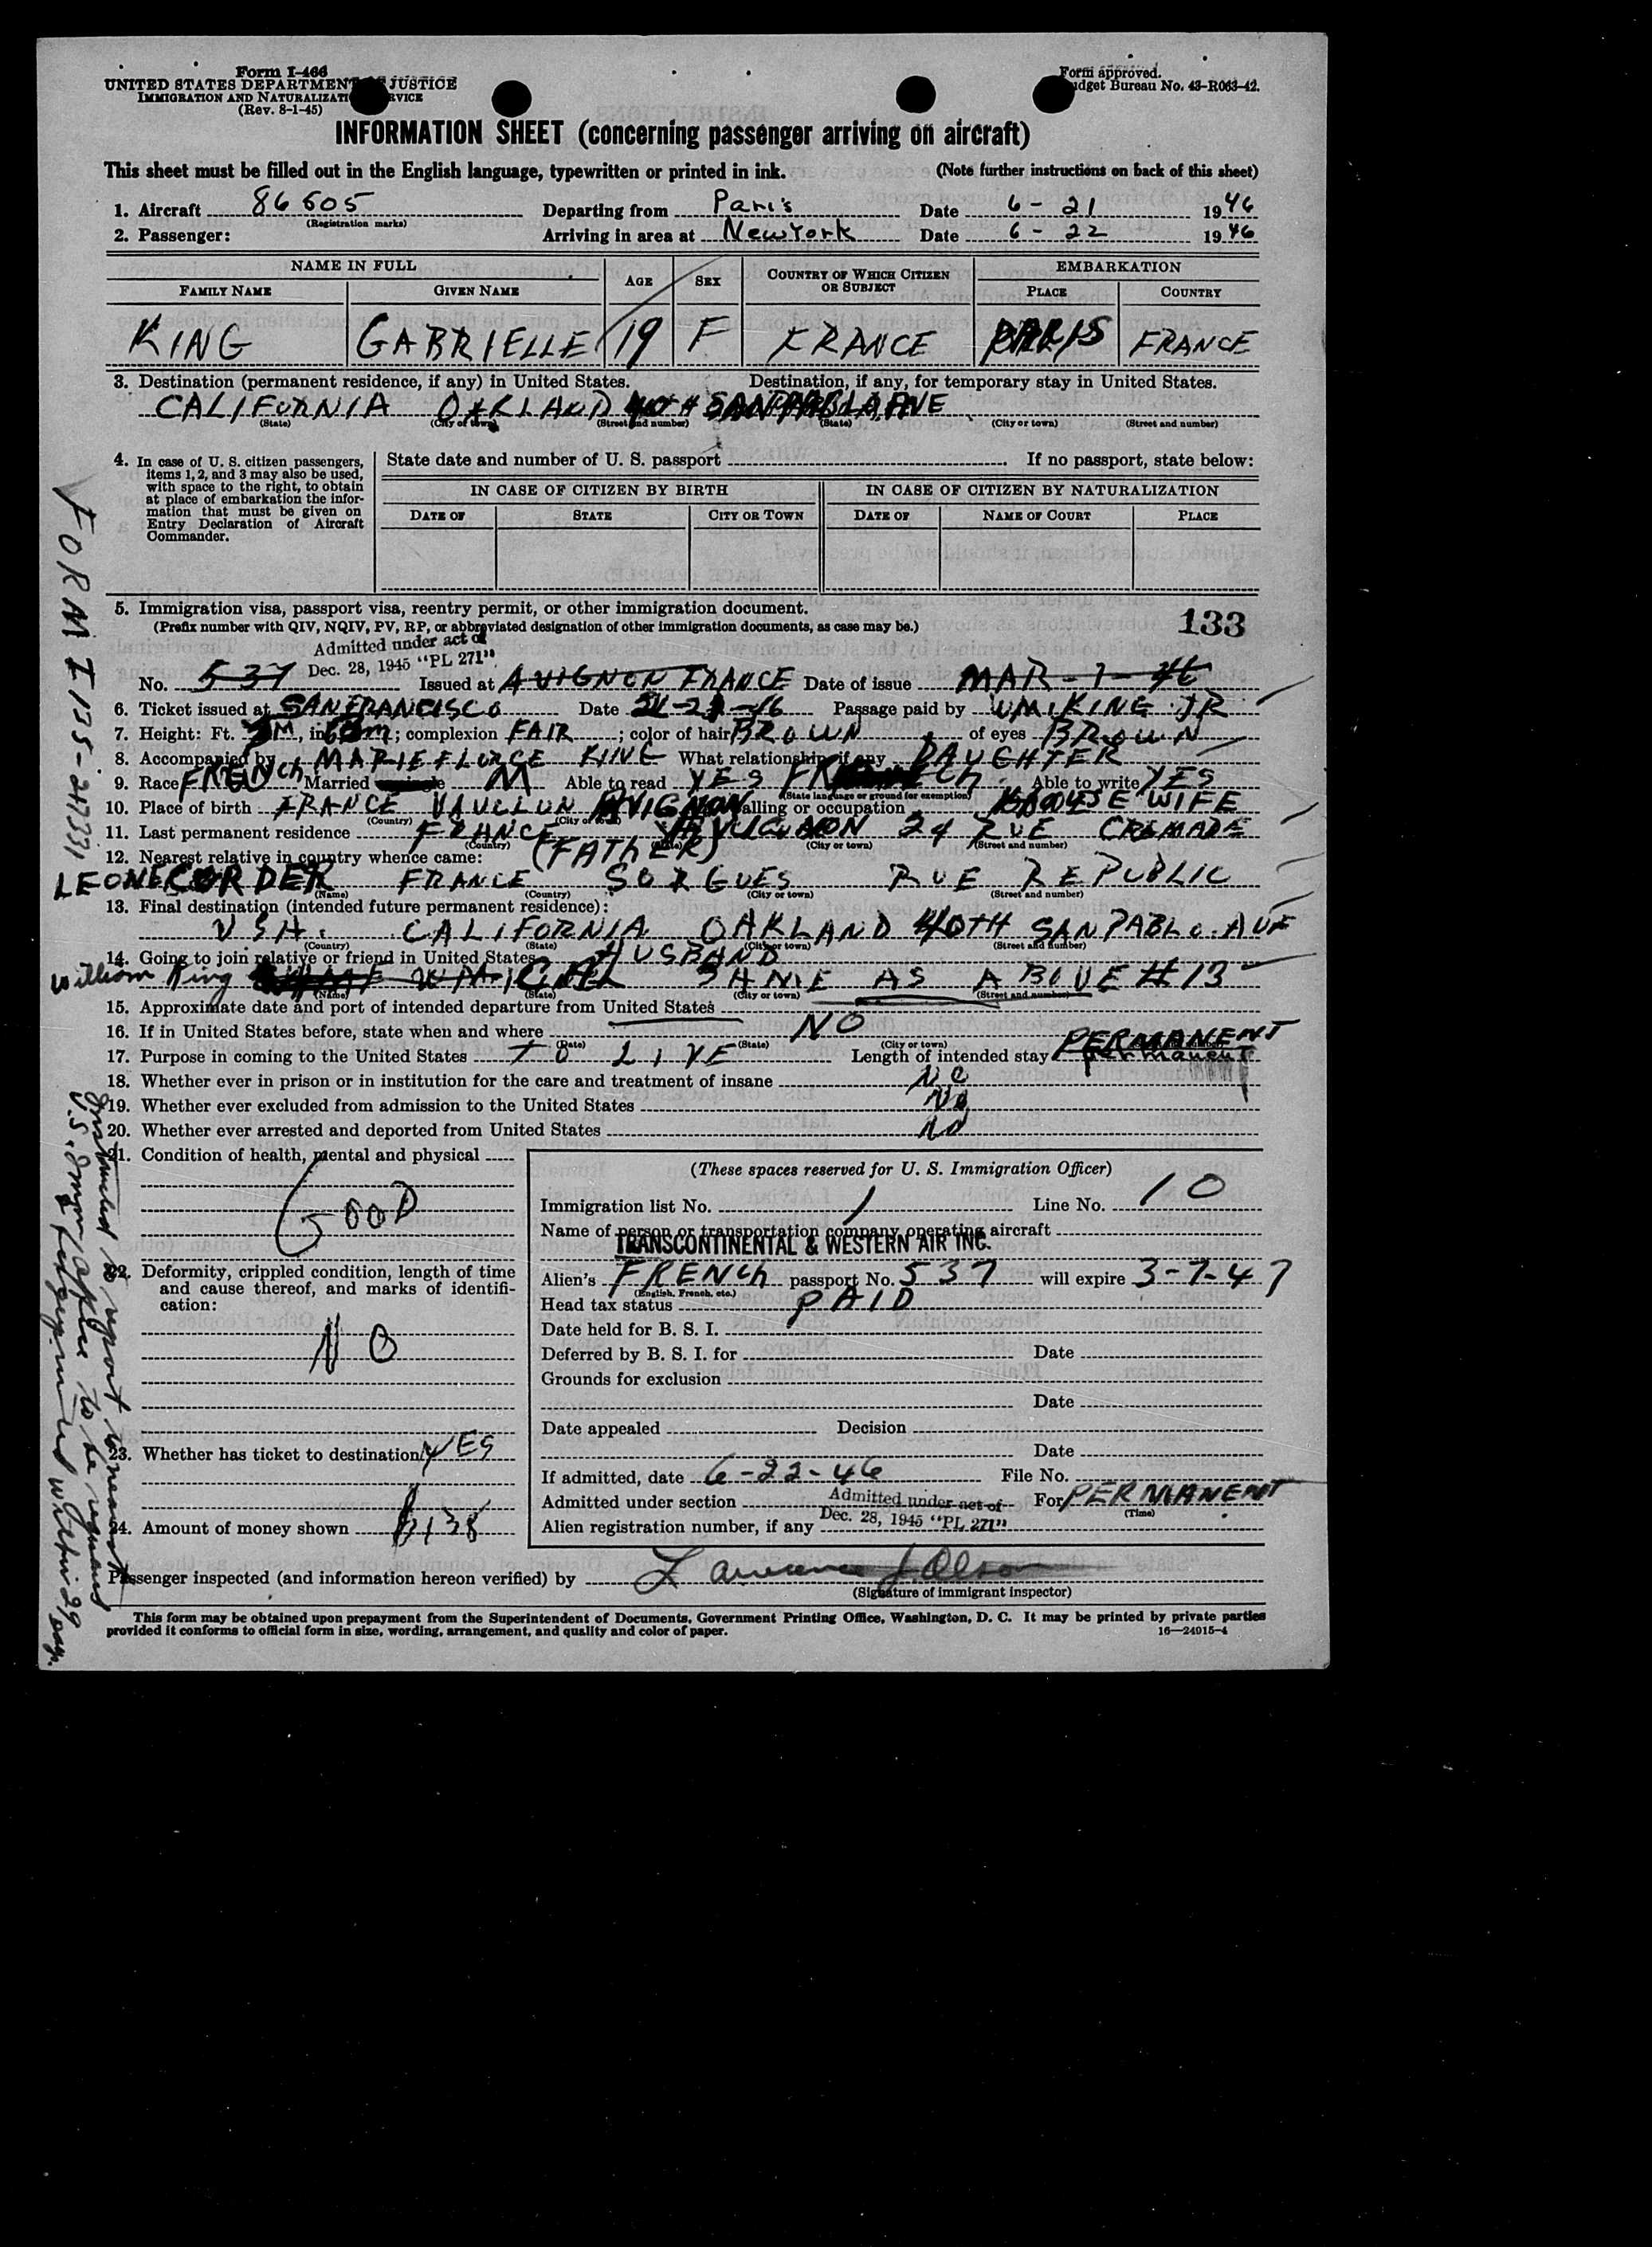 Form I-466
UNITED STATES DEPARTMENT OF JUSTICE
IMMIGRATION AND NATURALIZATION SERVICE
(Rev. 8-1-45)
Form approved.
Budget Bureau No. 43-R063-42.
INFORMATION SHEET (concerning passenger arriving on aircraft)
This sheet must be filled out in the English language, typewritten or printed in ink. (Note further instructions on back of this sheet)
1. Aircraft 86505 Departing from Paris Date 6-21 1946
(Registration marks)
2. Passenger: Arriving in area at New York Date 6-22 1946
NAME IN FULL AGE SEX COUNTRY OF WHICH CITIZEN OR SUBJECT EMBARKATION
FAMILY NAME GIVEN NAME PLACE COUNTRY
KING GABRIELLE 19 F FRANCE PARIS FRANCE
3. Destination (permanent residence, if any) in United States. Destination, if any, for temporary stay in United States.
CALIFORNIA OAKLAND 40TH SAN PABLO AVE
(State) (City or town) (Street and number) (State) (City or town) (Street and number)
4. In case of U. S. citizen passengers, items 1, 2, and 3 may also be used, with space to the right, to obtain at place of embarkation the information that must be given on Entry Declaration of Aircraft Commander.
State date and number of U. S. passport If no passport, state below:
IN CASE OF CITIZEN BY BIRTH IN CASE OF CITIZEN BY NATURALIZATION
DATE OF STATE CITY OR TOWN DATE OF NAME OF COURT PLACE
5. Immigration visa, passport visa, reentry permit, or other immigration document.
(Prefix number with QIV, NQIV, PV, RP, or abbreviated designation of other immigration documents, as case may be.)
133
Admitted under act of
Dec. 28, 1945 "PL 271"
No. 537 Issued at AVIGNON FRANCE Date of issue MAR-7-46
6. Ticket issued at SAN FRANCISCO Date -46 Passage paid by WM. KING JR
7. Height: Ft. , in. ; complexion FAIR ; color of hair BROWN of eyes BROWN
8. Accompanied by MARIE FLORCE KING What relationship, if any DAUGHTER
9. Race FRENCH Married M Able to read YES FRENCH Able to write YES
(State language or ground for exemption)
10. Place of birth FRANCE VAUCLUN AVIGNON Calling or occupation HOUSE WIFE
(Country) (City or town)
11. Last permanent residence FRANCE AVIGNON 24 RUE CREMADE
(Country) (City or town) (Street and number)
12. Nearest relative in country whence came: (FATHER)
LEONE CORDER FRANCE SORGUES RUE REPUBLIC
(Name) (Country) (City or town) (Street and number)
13. Final destination (intended future permanent residence):
USA. CALIFORNIA OAKLAND 40TH SAN PABLO AVE
(Country) (State) (City or town) (Street and number)
14. Going to join relative or friend in United States HUSBAND
William King CAL SAME AS ABOVE #13
(Name) (State) (City or town) (Street and number)
15. Approximate date and port of intended departure from United States
16. If in United States before, state when and where NO
(Date) (State) (City or town)
17. Purpose in coming to the United States TO LIVE Length of intended stay PERMANENT permanent
18. Whether ever in prison or in institution for the care and treatment of insane NO
19. Whether ever excluded from admission to the United States No
20. Whether ever arrested and deported from United States NO
21. Condition of health, mental and physical
GOOD
22. Deformity, crippled condition, length of time and cause thereof, and marks of identification:
NO
23. Whether has ticket to destination YES
24. Amount of money shown $138
(These spaces reserved for U. S. Immigration Officer)
Immigration list No. 1 Line No. 10
Name of person or transportation company operating aircraft
TRANSCONTINENTAL & WESTERN AIR INC.
Alien's FRENCH passport No. 537 will expire 3-7-47
(English, French, etc.)
Head tax status PAID
Date held for B. S. I.
Deferred by B. S. I. for Date
Grounds for exclusion
Date
Date appealed Decision
Date
If admitted, date 6-22-46 File No.
Admitted under section Admitted under act of For PERMANENT
(Time)
Alien registration number, if any Dec. 28, 1945 "PL 271"
Passenger inspected (and information hereon verified) by Lawrence J. Olson
(Signature of immigrant inspector)
This form may be obtained upon prepayment from the Superintendent of Documents, Government Printing Office, Washington, D. C. It may be printed by private parties
provided it conforms to official form in size, wording, arrangement, and quality and color of paper. 16—24915-4
FORM I 135-
Instructed to report to nearest
U.S. Immgn office to be
fingerprinted within 29 days.